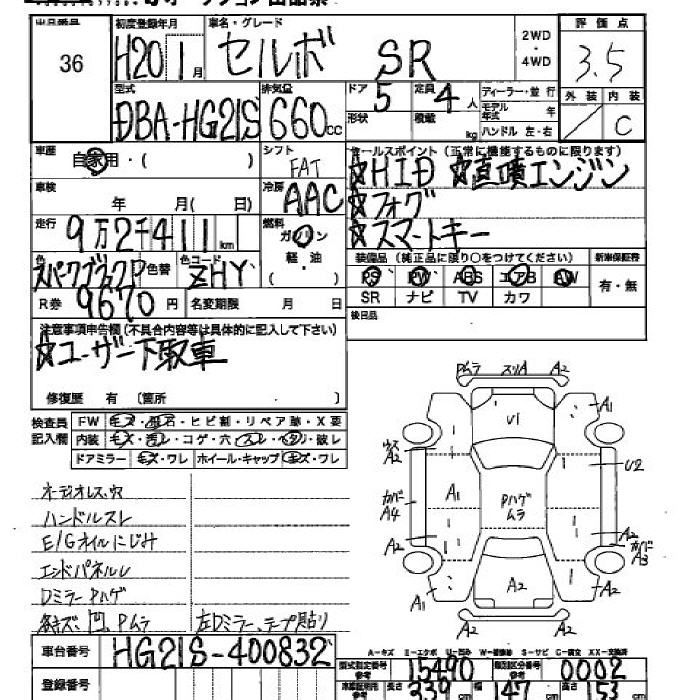 出品番号 初度登録年月 車名・グレード 2WD・4WD 評価点
36 H20 1月 セルボ SR 3.5
型式 排気量 ドア 定員 ディーラー・並行 外装 内装
DBA-HG21S 660cc 5 4人 モデル年式 年 C
形状 積載 kg ハンドル 左・右
車歴 自家用・( ) シフト FAT セールスポイント (正常に機能するものに限ります)
車検 年 月( 日) 冷房 AAC ☆HID ☆直噴エンジン
☆フォグ
走行 9万2千411km 燃料 ガソリン ☆スマートキー
軽油
( )
色 色替 色コード ZHY 装備品 (純正品に限り○をつけてください) 新車保証書
PS PW ABS エアB AW 有・無
R券 9670円 名変期限 月 日 SR ナビ TV カワ
注意事項申告欄(不具合内容等は具体的に記入して下さい) 後日品
☆ユーザー下取車
修復歴 有 〔箇所 ・ 〕
検査員記入欄 FW キズ・飛石・ヒビ割・リペア跡・X要
内装 キズ・汚レ・コゲ・穴・スレ・ヘタリ・破レ
ドアミラー キズ・ワレ ホイール・キャップ キズ・ワレ
Pムラ スリA A2
A1 U1
A2 U2
A1 Pハゲ ムラ
カバー A4
A2 A2 カバー A3
A1 A2
A2 A2
オーディオレス、穴
ハンドルスレ
E/Gオイルにじみ
エンドパネルU
DミラーPハゲ
各キズ、凹、Pムラ 左Dミラー、テープ貼り
車台番号 HG21S-400832
A-キズ E-エクボ U-凹み W-補修跡 S-サビ C-腐食 XX-交換済
型式指定番号 参考 15490 類別区分番号 参考 0002
登録番号 長さ 339cm 幅 147cm 高さ 153cm